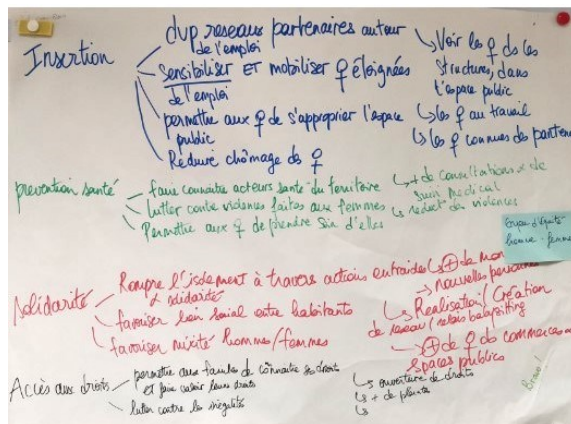 Insertion
dvp reseaux partenaires autour
de l'emploi
Sensibiliser ET mobiliser ♀ éloignées
de l'emploi
permettre aux ♀ de s'approprier l'espace
public
Réduire chômage des ♀
↳ Voir les ♀ ds les
structures, dans
l'espace public
↳ les ♀ au travail
↳ les ♀ connues des parten
prevention santé
faire connaitre acteurs santé du territoire
lutter contre violences faites aux femmes
Permettre aux ♀ de prendre soin d'elles
↳ + de consultations de
suivi médical
↳ reduct° des violences
homme - femme
Solidarité
Rompre l'isolement à travers actions entraide
& solidarité
favoriser lien social entre habitants
favoriser mixité hommes/femmes
↳ ⊕ de
→ nouvelles personnes
↳ Realisation / Création
de reseau / relais babysitting
↳ ⊕ de ♀ ds commerces
espaces publics
Accès aux droits
permettre aux familles de connaitre ses droits
et faire valoir leurs droits
lutter contre les inégalités
↳ ouverture de droits
↳ + de plainte
↳
Bravo!